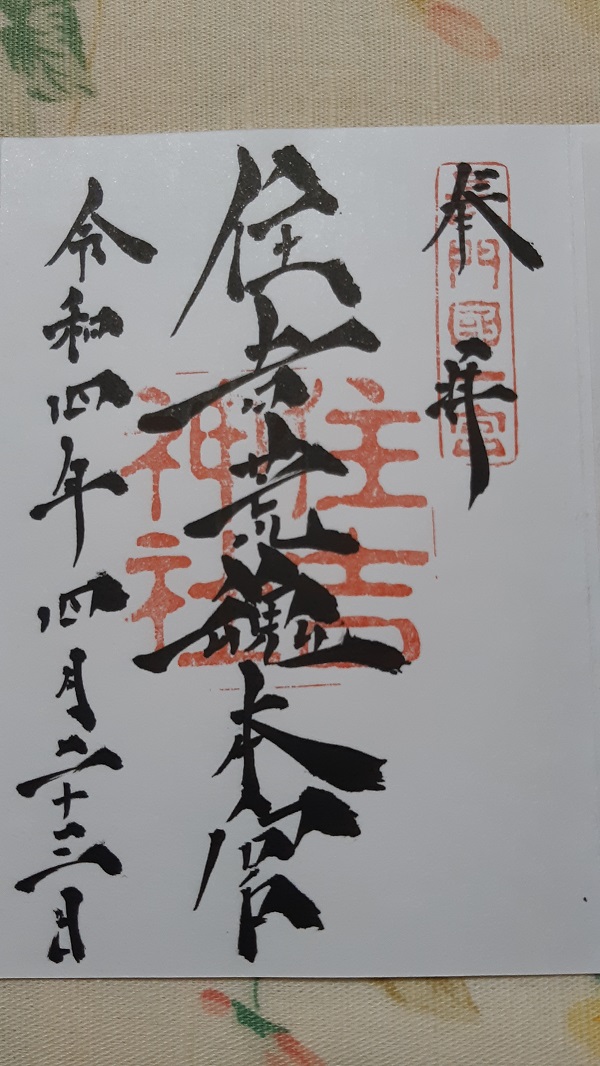 奉拝
長門國一宮
住吉荒魂本宮
住吉神社
令和四年四月二十三日